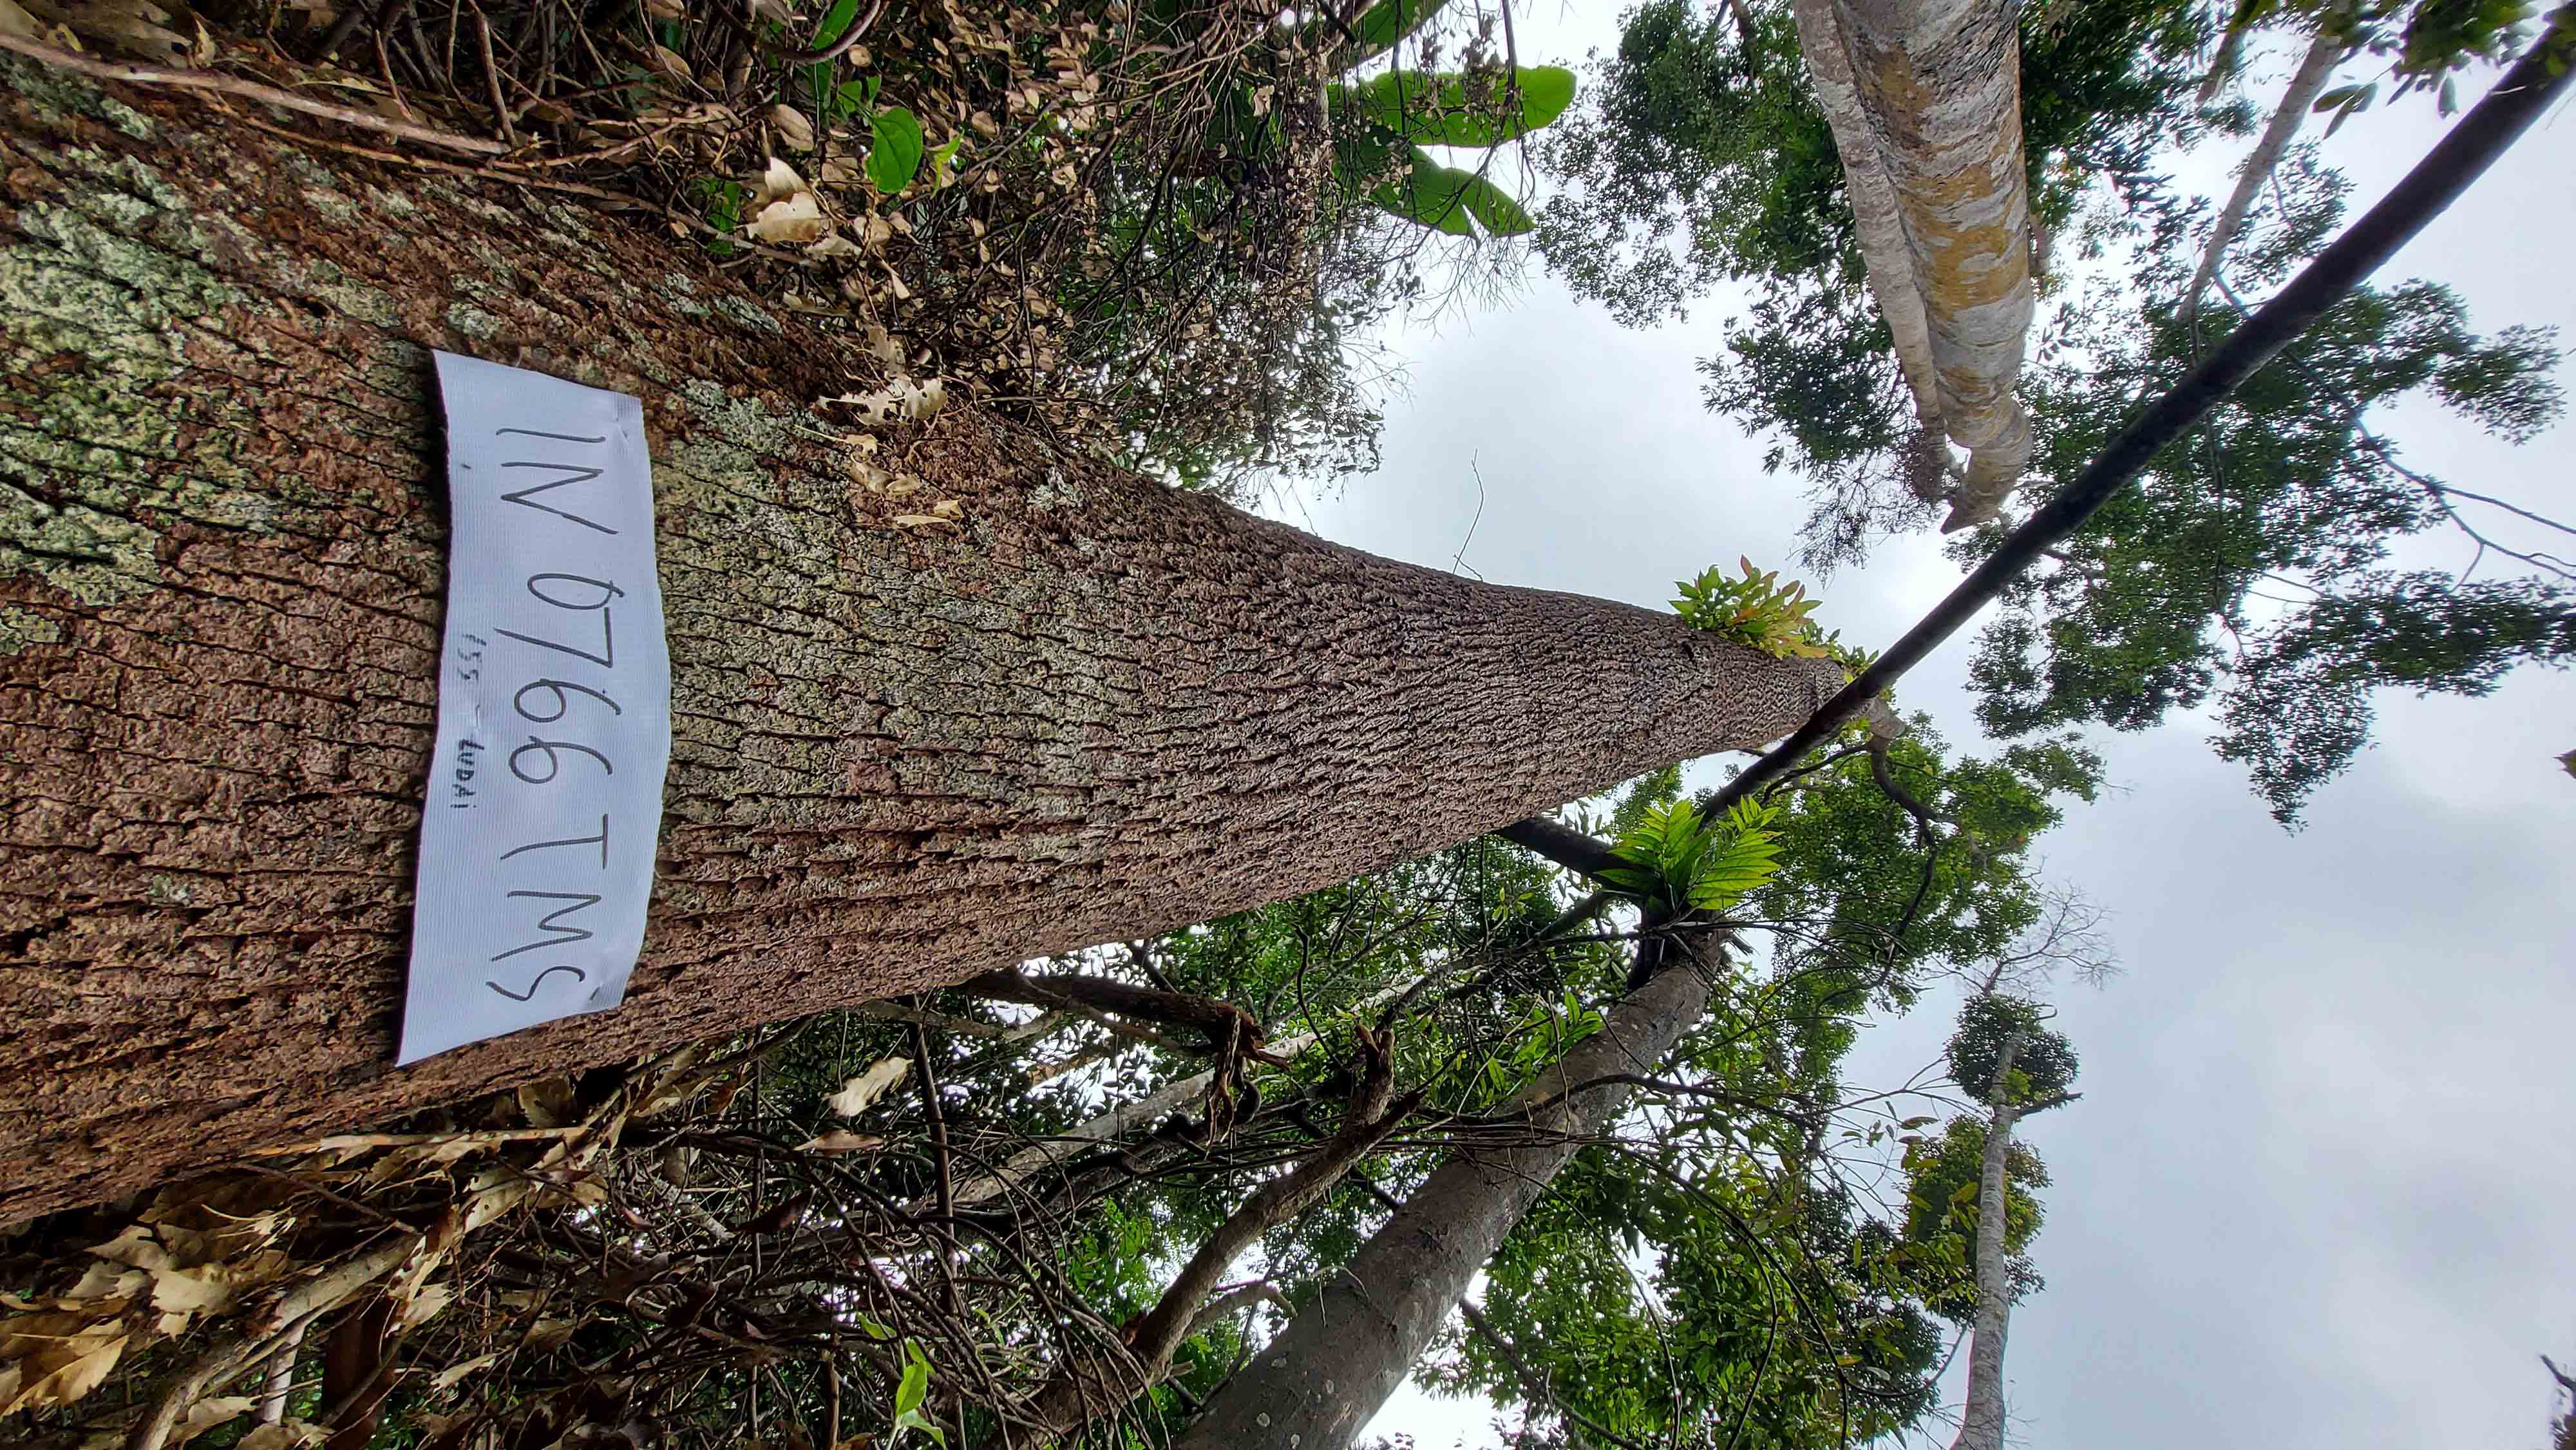 IN 0766 TMS
155 - LUDAI